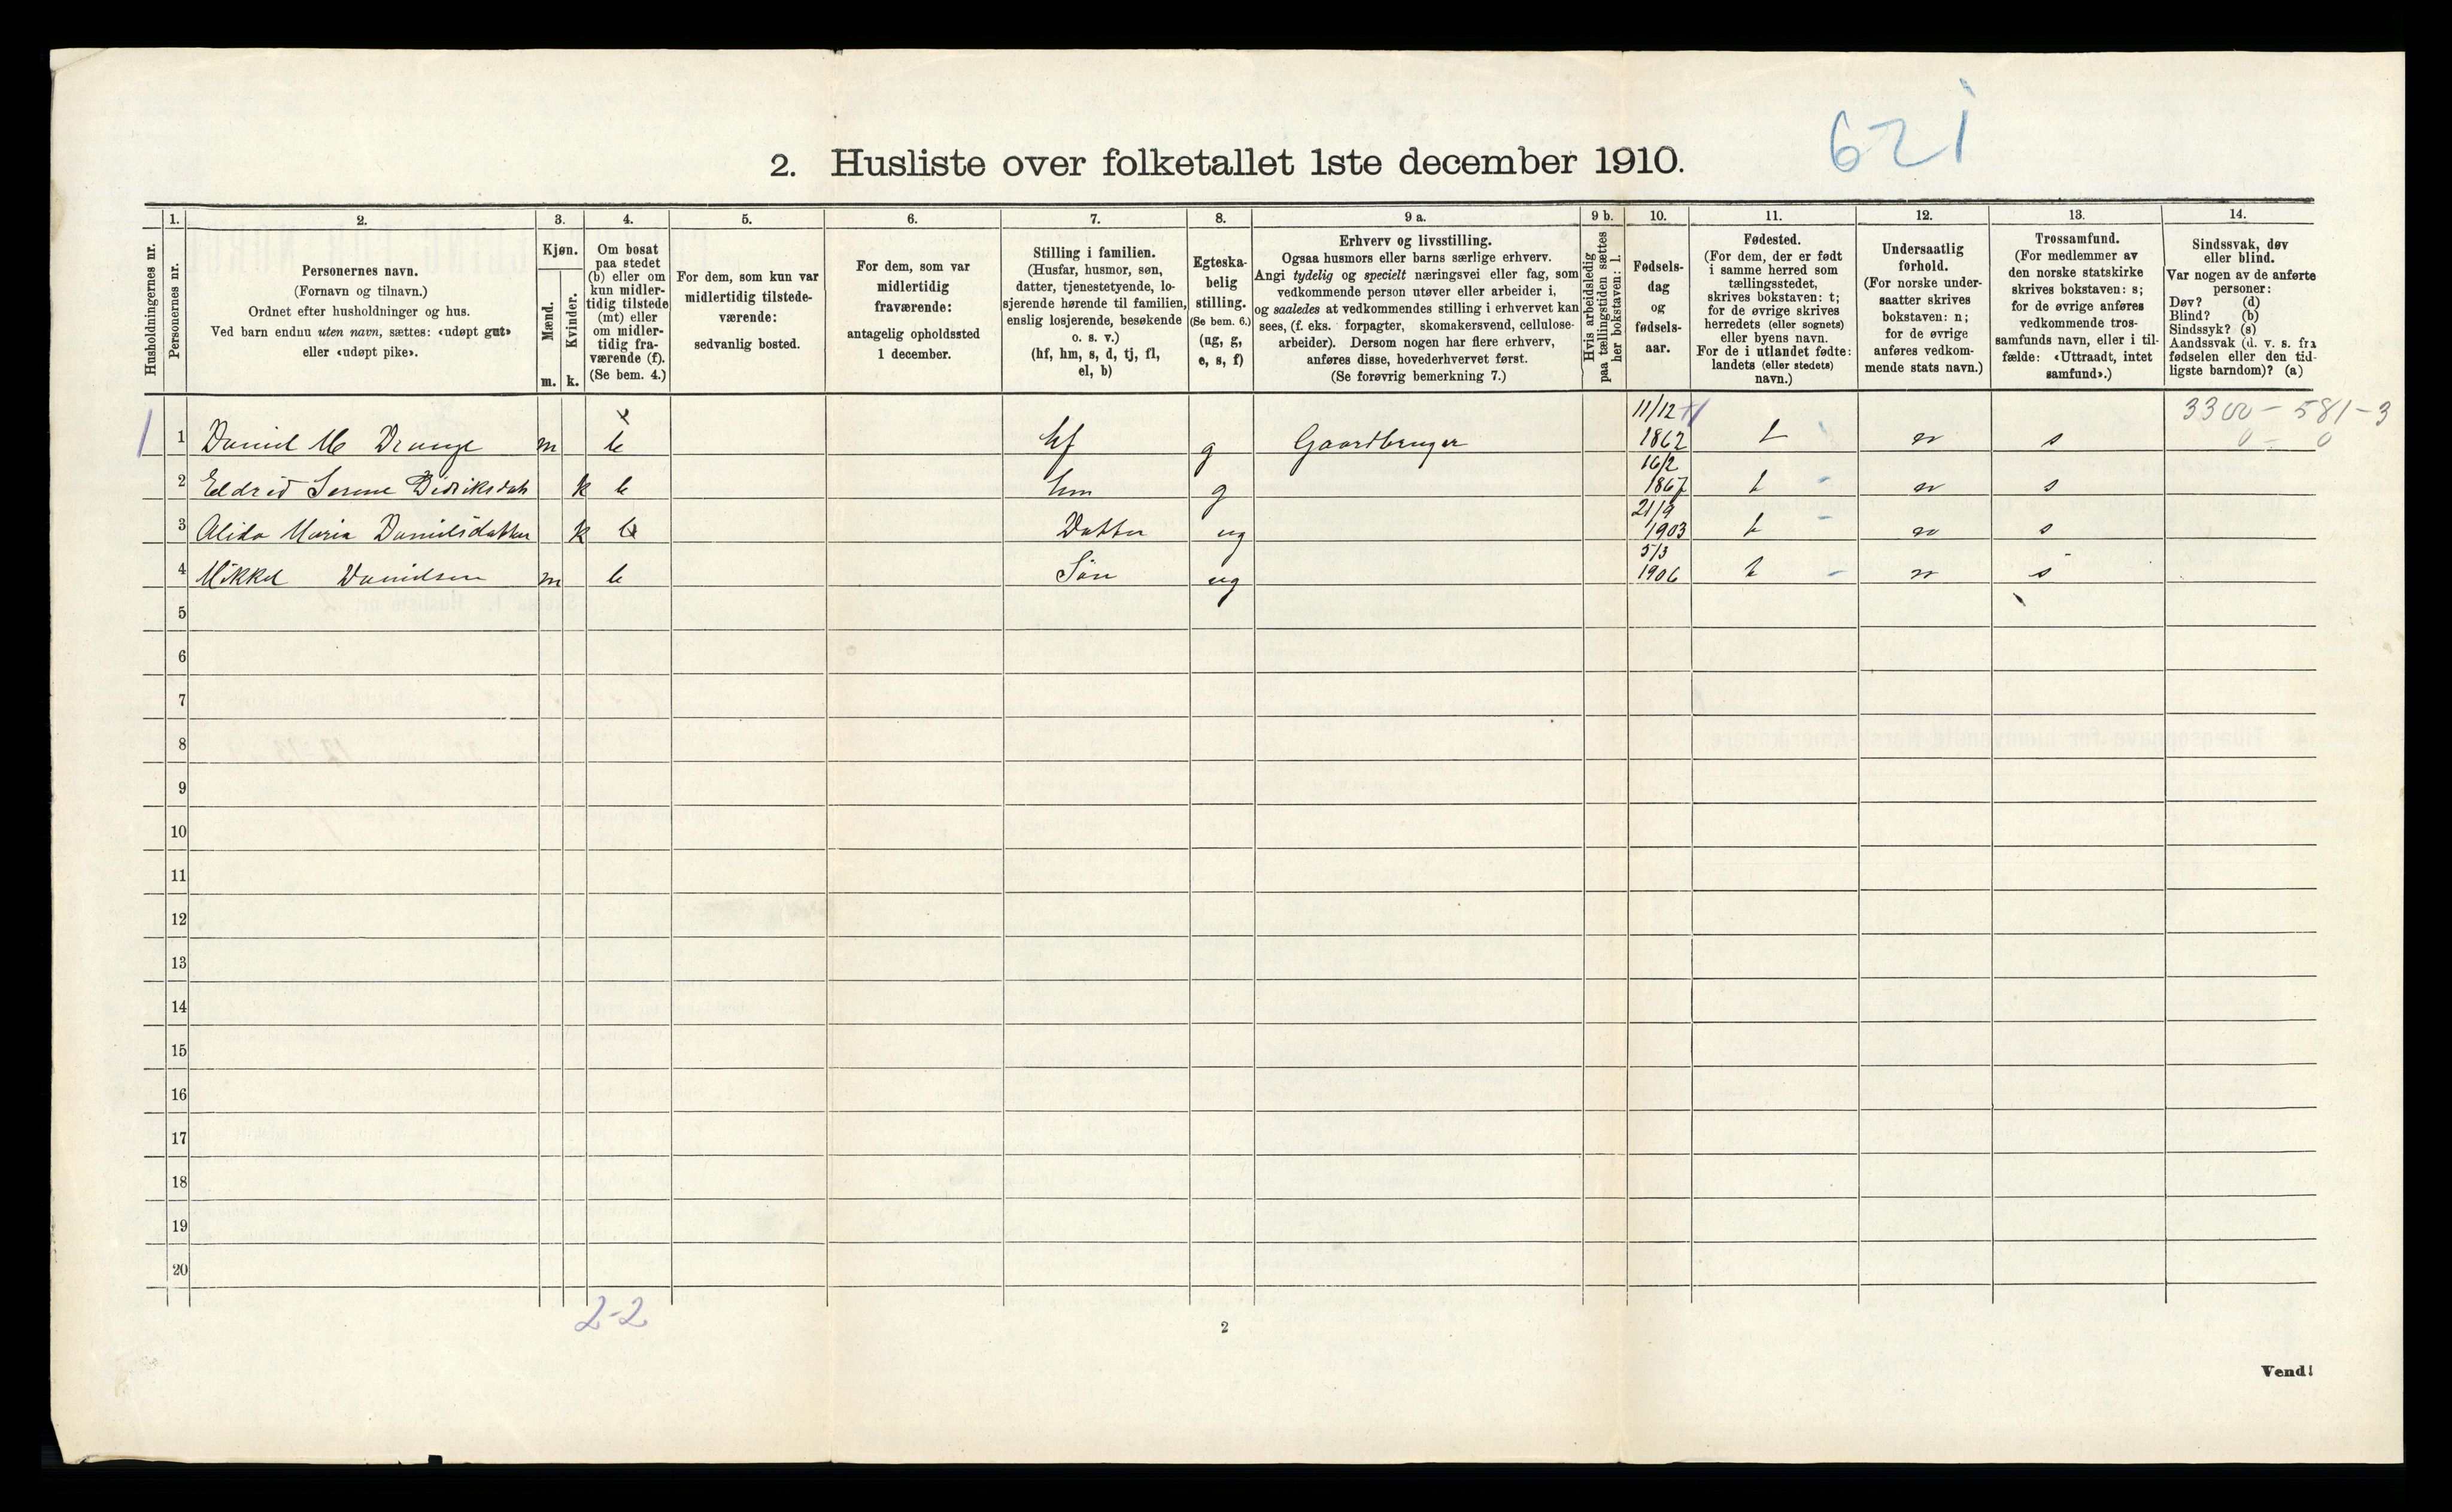 621
2. Husliste over folketallet 1ste december 1910.
Husholdningernes nr.
1. Personernes nr.
2. Personernes navn.
(Fornavn og tilnavn.)
Ordnet efter husholdninger og hus.
Ved barn endnu uten navn, sættes: «udøpt gut»
eller «udøpt pike».
3. Kjøn.
Mænd. m.
Kvinder. k.
4. Om bosat
paa stedet
(b) eller om
kun midler-
tidig tilstede
(mt) eller
om midler-
tidig fra-
værende (f).
(Se bem. 4.)
5. For dem, som kun var
midlertidig tilstede-
værende:
sedvanlig bosted.
6. For dem, som var
midlertidig
fraværende:
antagelig opholdssted
1 december.
7. Stilling i familien.
(Husfar, husmor, søn,
datter, tjenestetyende, lo-
sjerende hørende til familien,
enslig losjerende, besøkende
o. s. v.)
(hf, hm, s, d, tj, fl,
el, b)
8. Egteska-
belig
stilling.
(Se bem. 6.)
(ug, g,
e, s, f)
9 a. Erhverv og livsstilling.
Ogsaa husmors eller barns særlige erhverv.
Angi tydelig og specielt næringsvei eller fag, som
vedkommende person utøver eller arbeider i,
og saaledes at vedkommendes stilling i erhvervet kan
sees, (f. eks. forpagter, skomakersvend, cellulose-
arbeider). Dersom nogen har flere erhverv,
anføres disse, hovederhvervet først.
(Se forøvrig bemerkning 7.)
9 b. Hvis arbeidsledig
paa tællingstiden sættes
her bokstaven: l.
10. Fødsels-
dag
og
fødsels-
aar.
11. Fødested.
(For dem, der er født
i samme herred som
tællingsstedet,
skrives bokstaven: t;
for de øvrige skrives
herredets (eller sognets)
eller byens navn.
For de i utlandet fødte:
landets (eller stedets)
navn.)
12. Undersaatlig
forhold.
(For norske under-
saatter skrives
bokstaven: n;
for de øvrige
anføres vedkom-
mende stats navn.)
13. Trossamfund.
(For medlemmer av
den norske statskirke
skrives bokstaven: s;
for de øvrige anføres
vedkommende tros-
samfunds navn, eller i til-
fælde: «Uttraadt, intet
samfund».)
14. Sindssvak, døv
eller blind.
Var nogen av de anførte
personer:
Døv? (d)
Blind? (b)
Sindssyk? (s)
Aandssvak (d. v. s. fra
fødselen eller den tid-
ligste barndom)? (a)
3300 - 581-3
0 - 0
1 1 Daniel M Drange m b hf g Gaardbruger 11/12 1862 t n s
2 Eldrid Serene Didriksdat k b hm g 16/2 1867 t n s
3 Alida Maria Danielsdatter k b Datter ug 21/9 1903 t n s
4 Mikkel Danielsen m b Søn ug 5/3 1906 t n s
5
6
7
8
9
10
11
12
13
14
15
16
17
18
19
20
2-2
2
Vend!